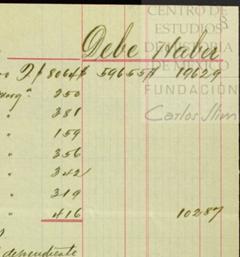 CENTRO DE
ESTUDIOS
DE HISTORIA
DE MÉXICO
FUNDACIÓN
Carlos Slim
8
Debe Haber
8064 59655 19629
250
" 381
" 159
" 356
" 342
" 319
" 416 10287
dependiente